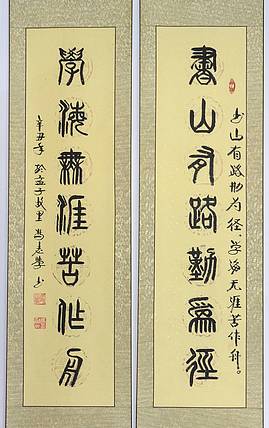 書山有路勤為徑
书山有路勤为径，学海无涯苦作舟。
學海無涯苦作舟
辛丑年